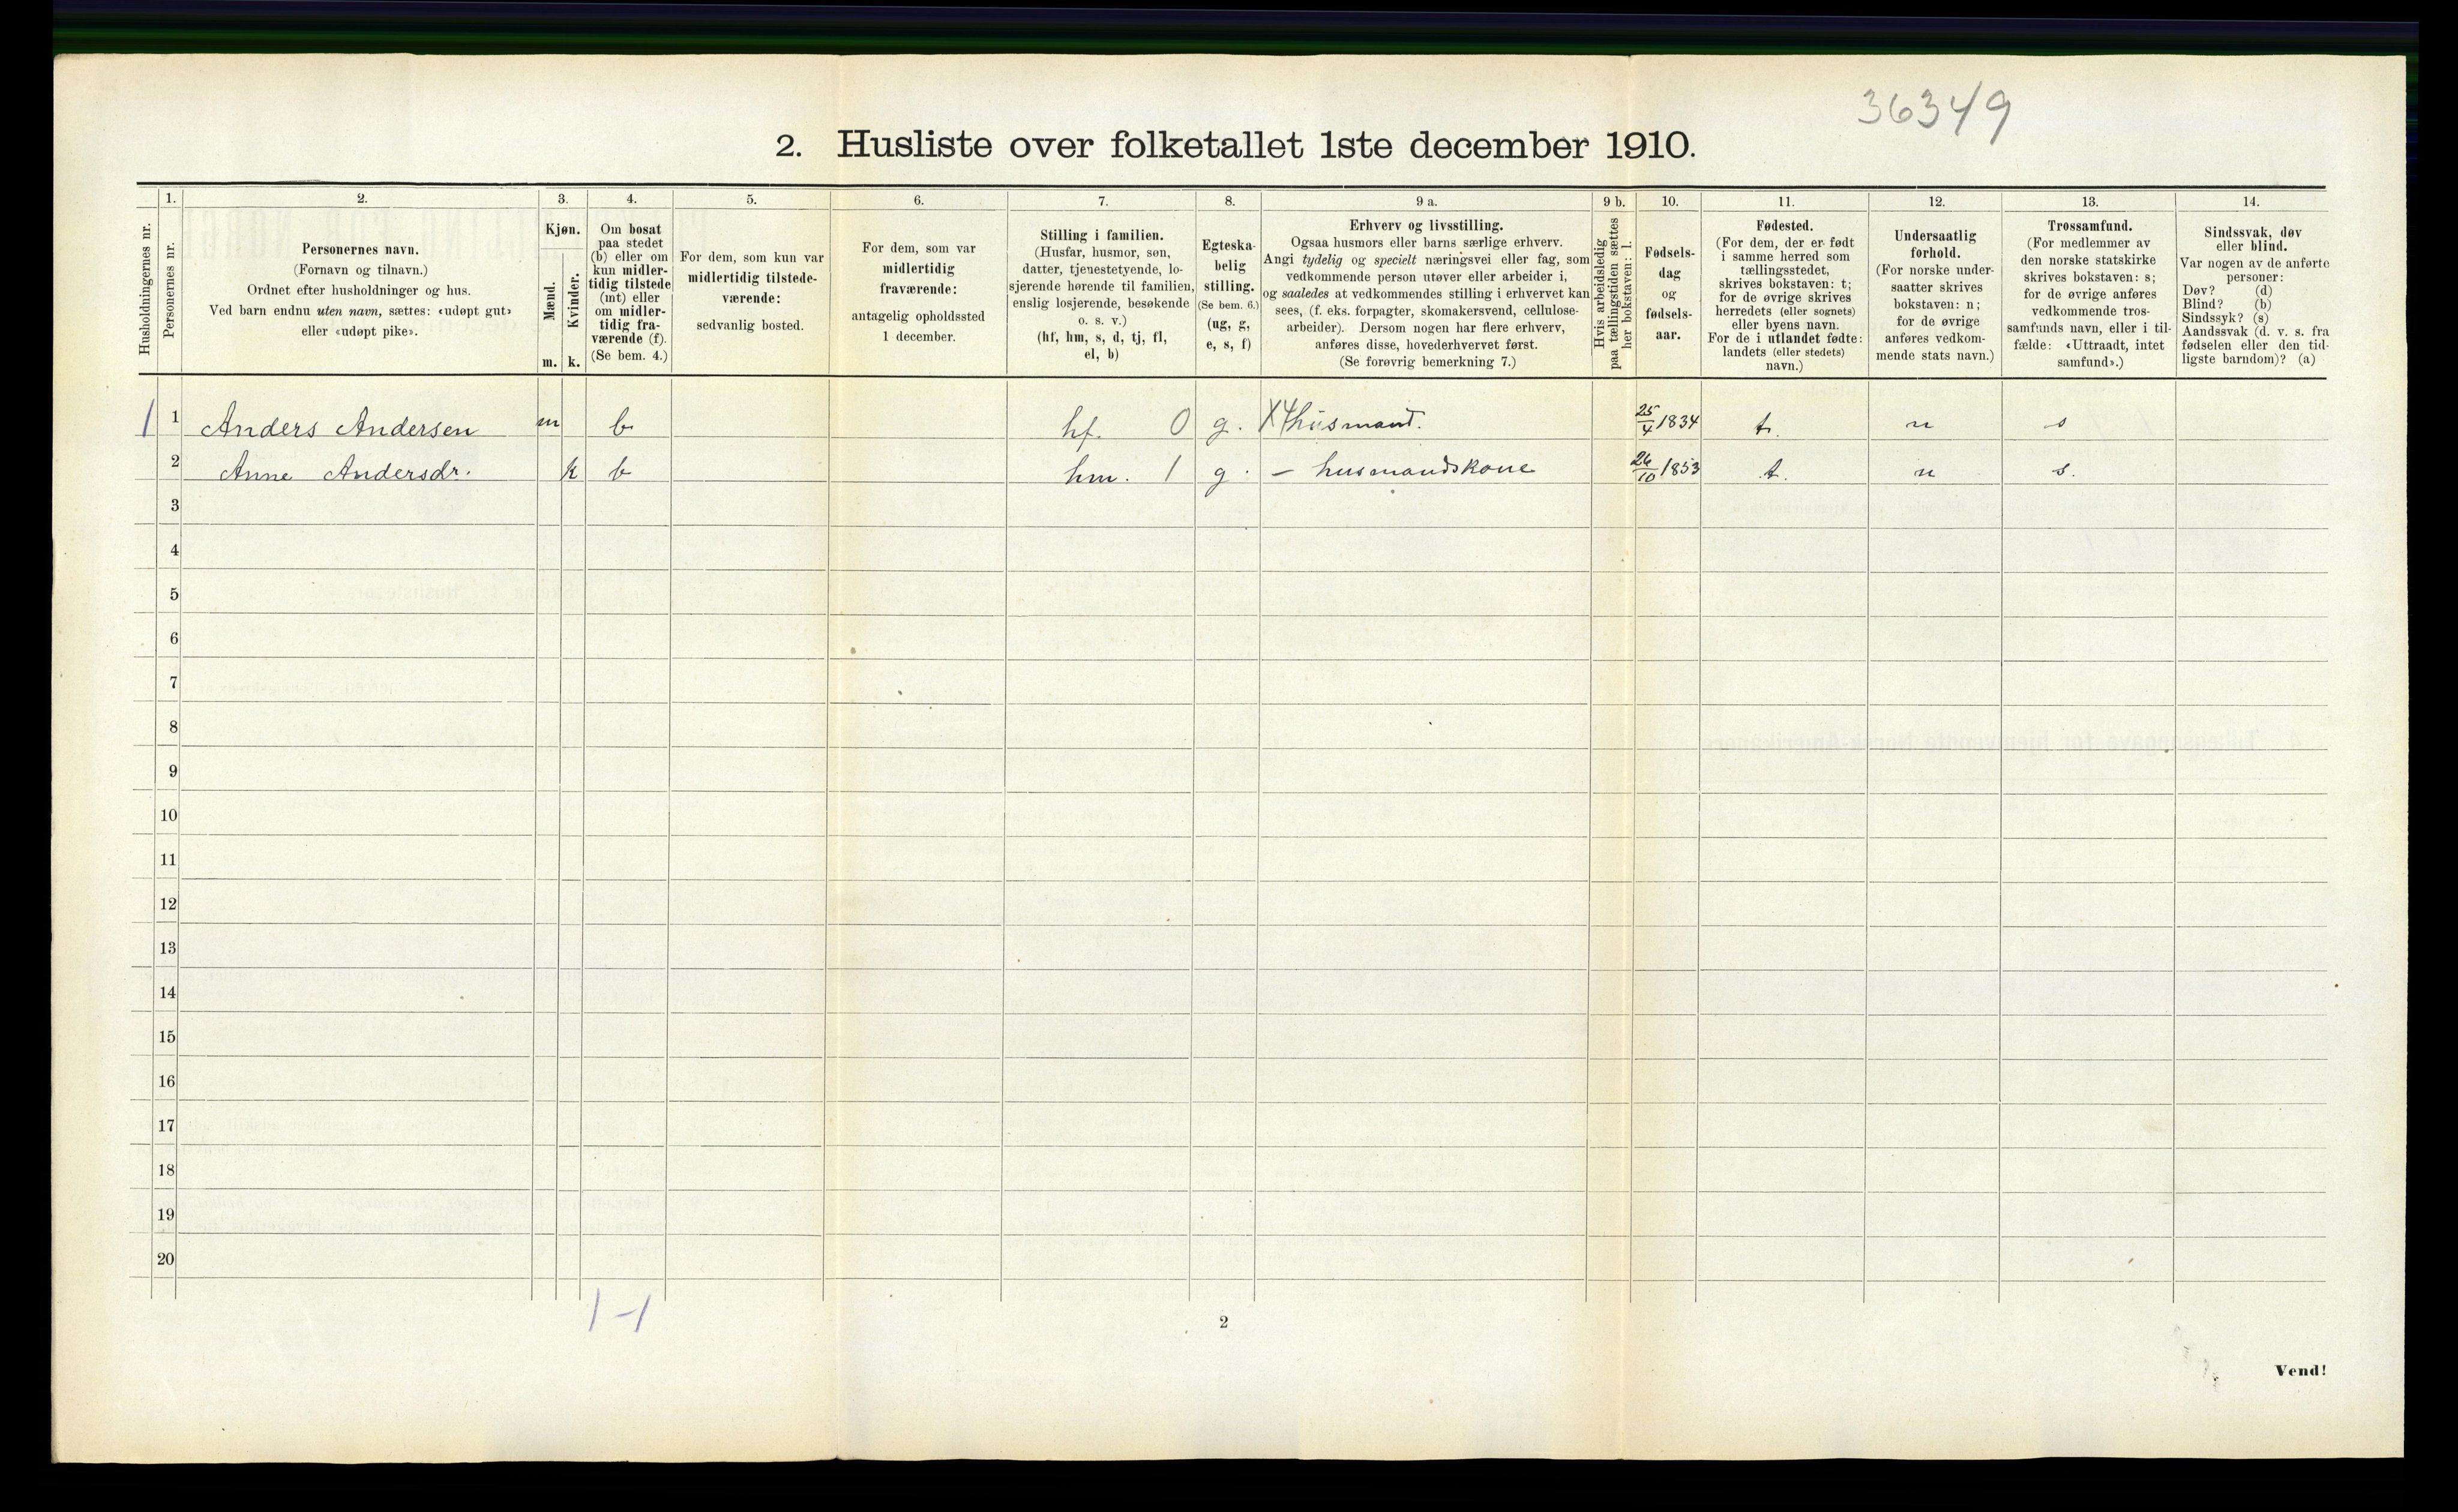 36349
2. Husliste over folketallet 1ste december 1910.
Husholdningernes nr.
1.
Personernes nr.
2.
Personernes navn.
(Fornavn og tilnavn.)
Ordnet efter husholdninger og hus.
Ved barn endnu uten navn, sættes: «udøpt gut»
eller «udøpt pike».
3.
Kjøn.
Mænd.
m.
Kvinder.
k.
4.
Om bosat
paa stedet
(b) eller om
kun midler-
tidig tilstede
(mt) eller
om midler-
tidig fra-
værende (f).
(Se bem. 4.)
5.
For dem, som kun var
midlertidig tilstede-
værende:
sedvanlig bosted.
6.
For dem, som var
midlertidig
fraværende:
antagelig opholdssted
1 december.
7.
Stilling i familien.
(Husfar, husmor, søn,
datter, tjenestetyende, lo-
sjerende hørende til familien,
enslig losjerende, besøkende
o. s. v.)
(hf, hm, s, d, tj, fl,
el, b)
8.
Egteska-
belig
stilling.
(Se bem. 6.)
(ug, g,
e, s, f)
9 a.
Erhverv og livsstilling.
Ogsaa husmors eller barns særlige erhverv.
Angi tydelig og specielt næringsvei eller fag, som
vedkommende person utøver eller arbeider i,
og saaledes at vedkommendes stilling i erhvervet kan
sees, (f. eks. forpagter, skomakersvend, cellulose-
arbeider). Dersom nogen har flere erhverv,
anføres disse, hovederhvervet først.
(Se forøvrig bemerkning 7.)
9 b.
Hvis arbeidsledig
paa tællingstiden sættes
her bokstaven: l.
10.
Fødsels-
dag
og
fødsels-
aar.
11.
Fødested.
(For dem, der er født
i samme herred som
tællingsstedet,
skrives bokstaven: t;
for de øvrige skrives
herredets (eller sognets)
eller byens navn.
For de i utlandet fødte:
landets (eller stedets)
navn.)
12.
Undersaatlig
forhold.
(For norske under-
saatter skrives
bokstaven: n;
for de øvrige
anføres vedkom-
mende stats navn.)
13.
Trossamfund.
(For medlemmer av
den norske statskirke
skrives bokstaven: s;
for de øvrige anføres
vedkommende tros-
samfunds navn, eller i til-
fælde: «Uttraadt, intet
samfund».)
14.
Sindssvak, døv
eller blind.
Var nogen av de anførte
personer:
Døv? (d)
Blind? (b)
Sindssyk? (s)
Aandssvak (d. v. s. fra
fødselen eller den tid-
ligste barndom)? (a)
1 1 Anders Andersen m b hf. 0 g. X4 husmand. 25/4 1834 t. n s
2 Anne Andersdr. k b hm. 1 g. – husmandskone 26/10 1853 t. n s.
3
4
5
6
7
8
9
10
11
12
13
14
15
16
17
18
19
20
1-1
2
Vend!